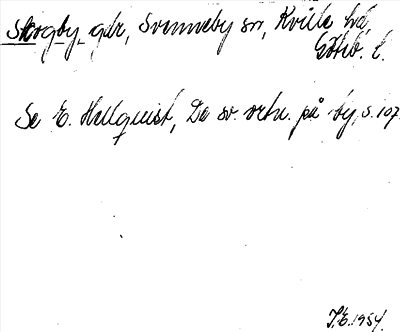 Skogby, gdr, Svenneby sn, Kville hd,
Göteb. l.
Se E. Hellquist, De sv. ortn. på -by, s. 107.
J.E. 1954.